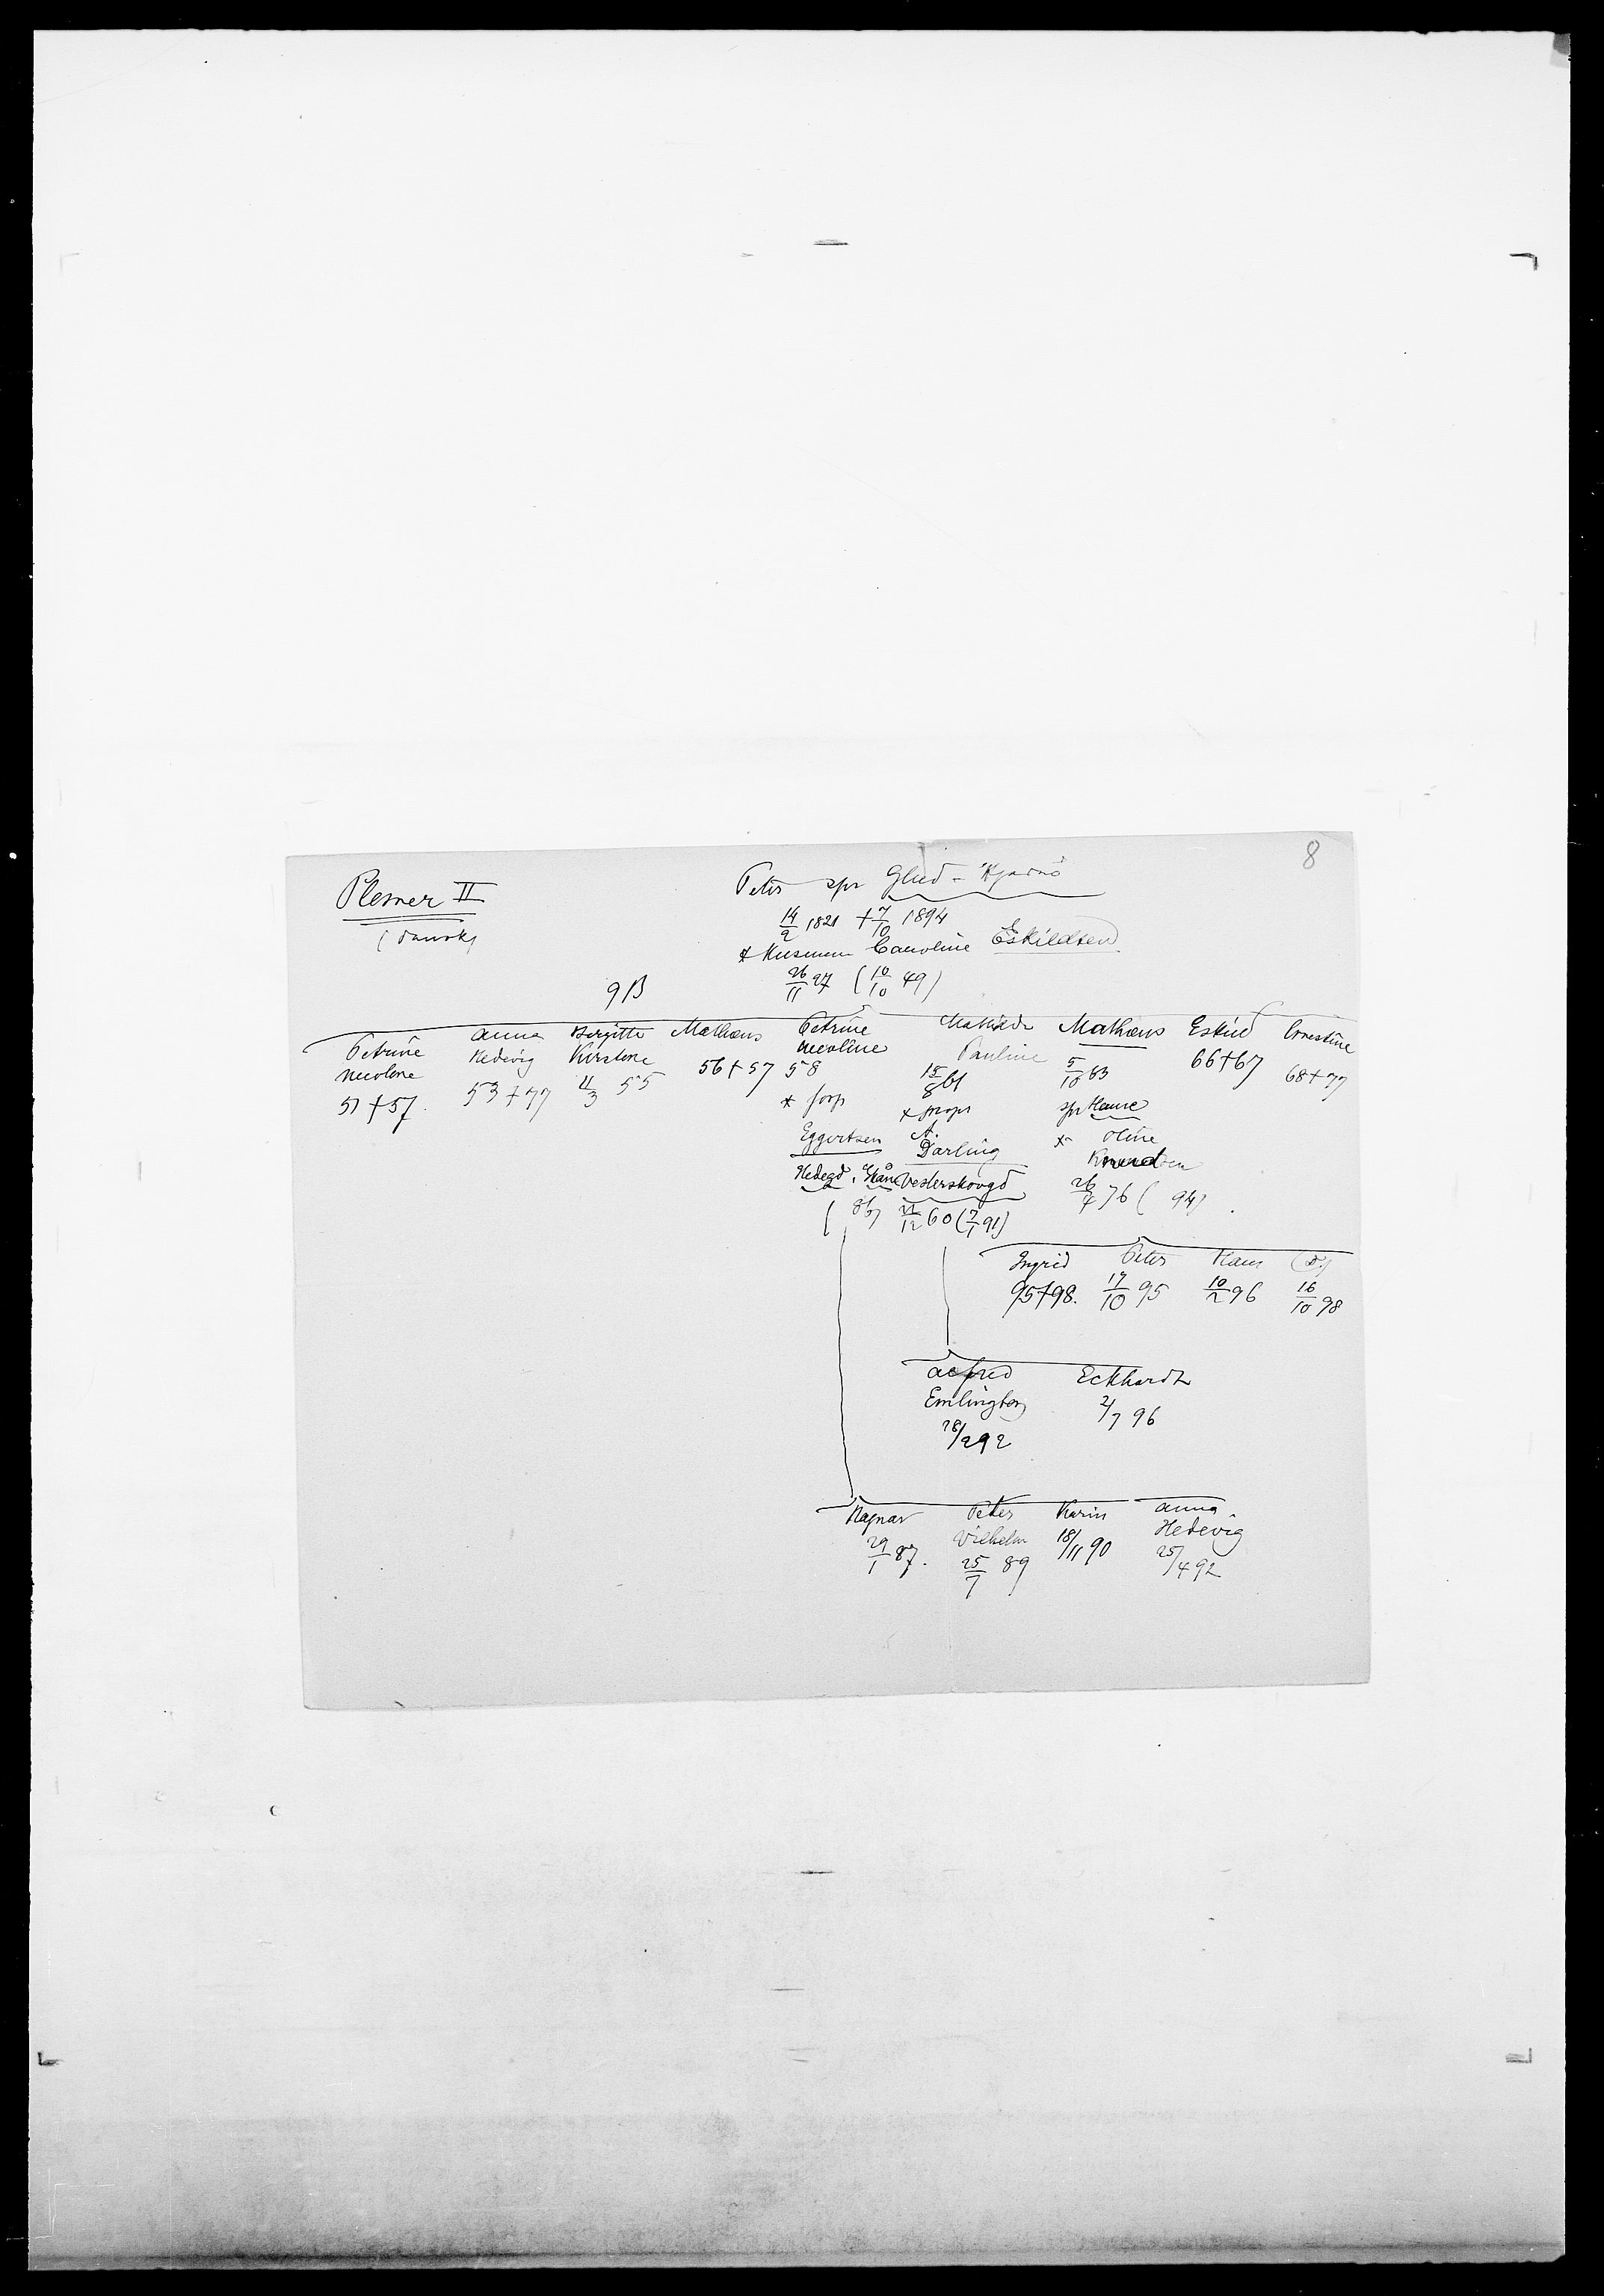 8
Plesner II
(dansk)
Peter spr Glud - Hjarnö
14/2 1821 † 7/10 1894
* Caroline Eskildsen
26/11 27 (10/10 49)
9 B
Petrine
Nicoline
51 † 57.
Anna
Hedevig
53 † 77
Birgitte
Kirstine
11/3 55
Mathæus
56 † 57
Petrine
Nicoline
58
* forp
Eggertsen
Hedegd, Skåne
( 86)
Mathilde
Pauline
15/8 61
* propr
A.
Darling
Vesterskovgd
21/12 60 (7/1 91)
Mathæus
5/10 63
spr Haure
* Oline
Knudsen
26/4 76 ( 94)
Eskild
66 † 67
Ernestine
68 † 77
Ingrid
95 † 98.
Peter
17/10 95
Hans
10/2 96
(D.)
16/10 98
Alfred
28/2 92
Eckhardt
2/7 96
Ragnar
29/1 87.
Peter
Vilhelm
25/7 89
Karin
18/11 90
Anna
Hedevig
25/4 92